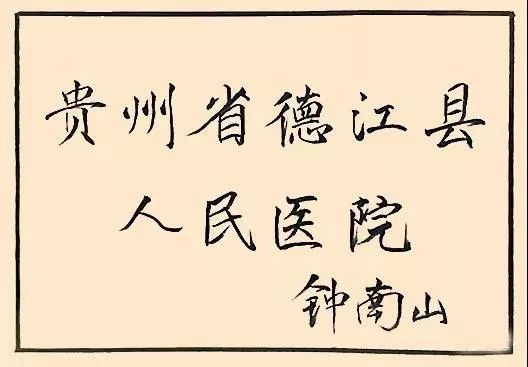 贵州省德江县
人民医院
钟南山